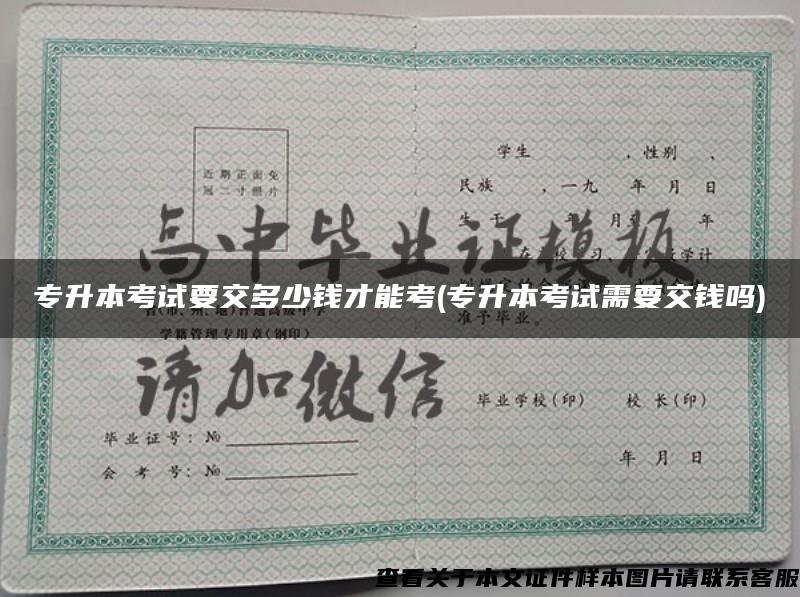 近期正面免
冠二寸照片
学生　　　，性别　、
民族　　，一九　年　月　日
高中毕业证模板
专升本考试要交多少钱才能考(专升本考试需要交钱吗)
准予毕业。
学籍管理专用章(钢印)
请加微信
毕业学校(印)　校长(印)
毕业证号：№
会考号：№
年　月　日
查看关于本文证件样本图片请联系客服